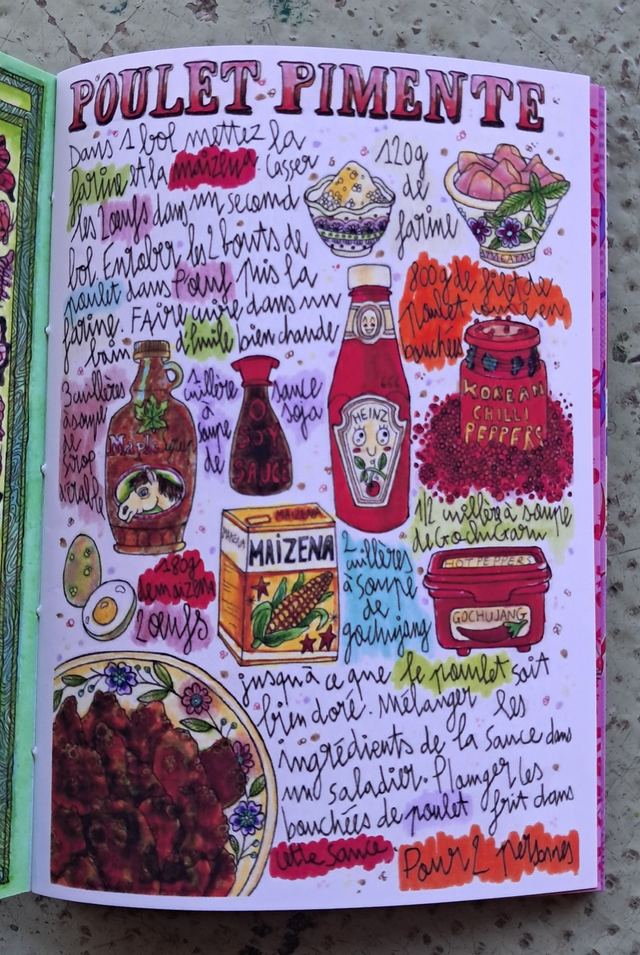 POULET PIMENTE
Dans 1 bol mettez la
farine et la maizena. Casser
les 2 oeufs dans un second
bol. Enrober les 2 bouts de
poulet dans l'oeuf puis la
farine. FAire cuire dans un
bain d'huile bien chaude
120g
de
farine
800g de filet de
poulet coupé en
bouchées
3 cuillères
à soupe
de
sirop
d'érable
Maple
1 cuillère
à
soupe
de
sauce
soja
SOY
SAUCE
HEINZ
KOREAN
CHILLI
PEPPERS
1/2 cuillère à soupe
de Gochugaru
180g
de maizena
2 oeufs
MAIZENA
MAIZENA
MAIZENA
2
cuillères
à soupe
de
gochujang
HOT PEPPERS
GOCHUJANG
jusqu'à ce que le poulet soit
bien doré. Mélanger les
ingrédients de la sauce dans
un saladier. Plonger les
bouchées de poulet frit dans
cette sauce.
Pour 2 persones